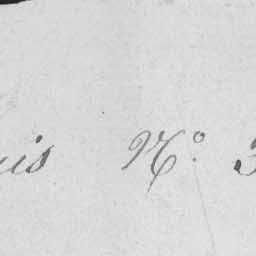 is N° 3